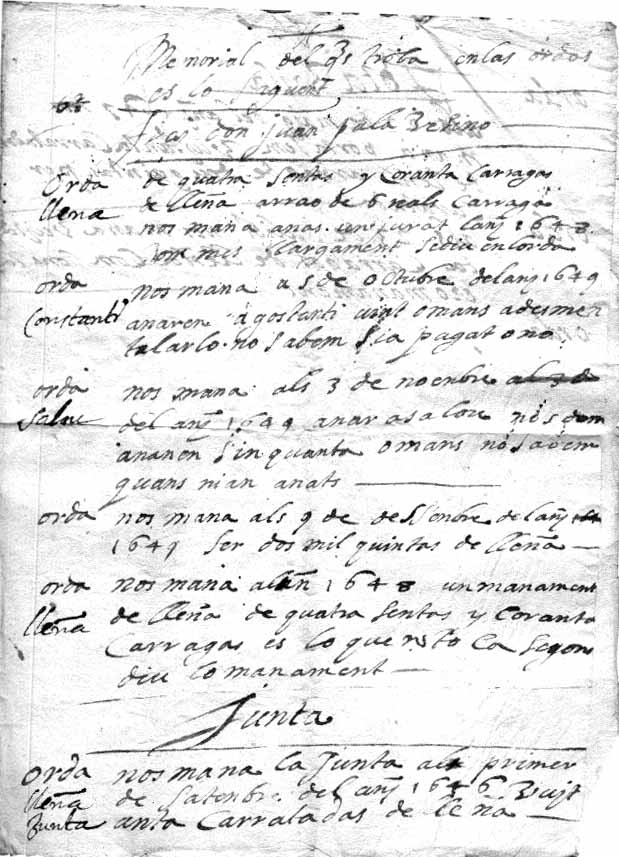 Memorial del qs troba en las ordes
es lo siguent
don Juan pala
Orda de quatra sentas y coranta carragas
llena de llena arrao de 6 rials carraga
nos mana anas un jurat lanỹ 1648
com mes llargament se diu en lorda
orda nos mana a 5 de octubre del anỹ 1649
Constanti anaren agostarti vint omans a desmen
talarlo no sabem sia pagat o no
orda nos mana als 3 de noenbre
salou del anỹ 1649 anar a salou
ananen sinquanta omans no sabem
quans nian anats
orda nos mana als 9 de dessenbre de lanỹ
1649 ser dos mil quintas de lleña
orda nos mana 1648 un manament
lleña de lleña de quatra sentas y coranta
carragas es lo que resta la segons
diu lo manament
Junta
orda nos mana la Junta al primer
lleña de satenbre del anỹ 1646
Junta anta carratadas de lleña